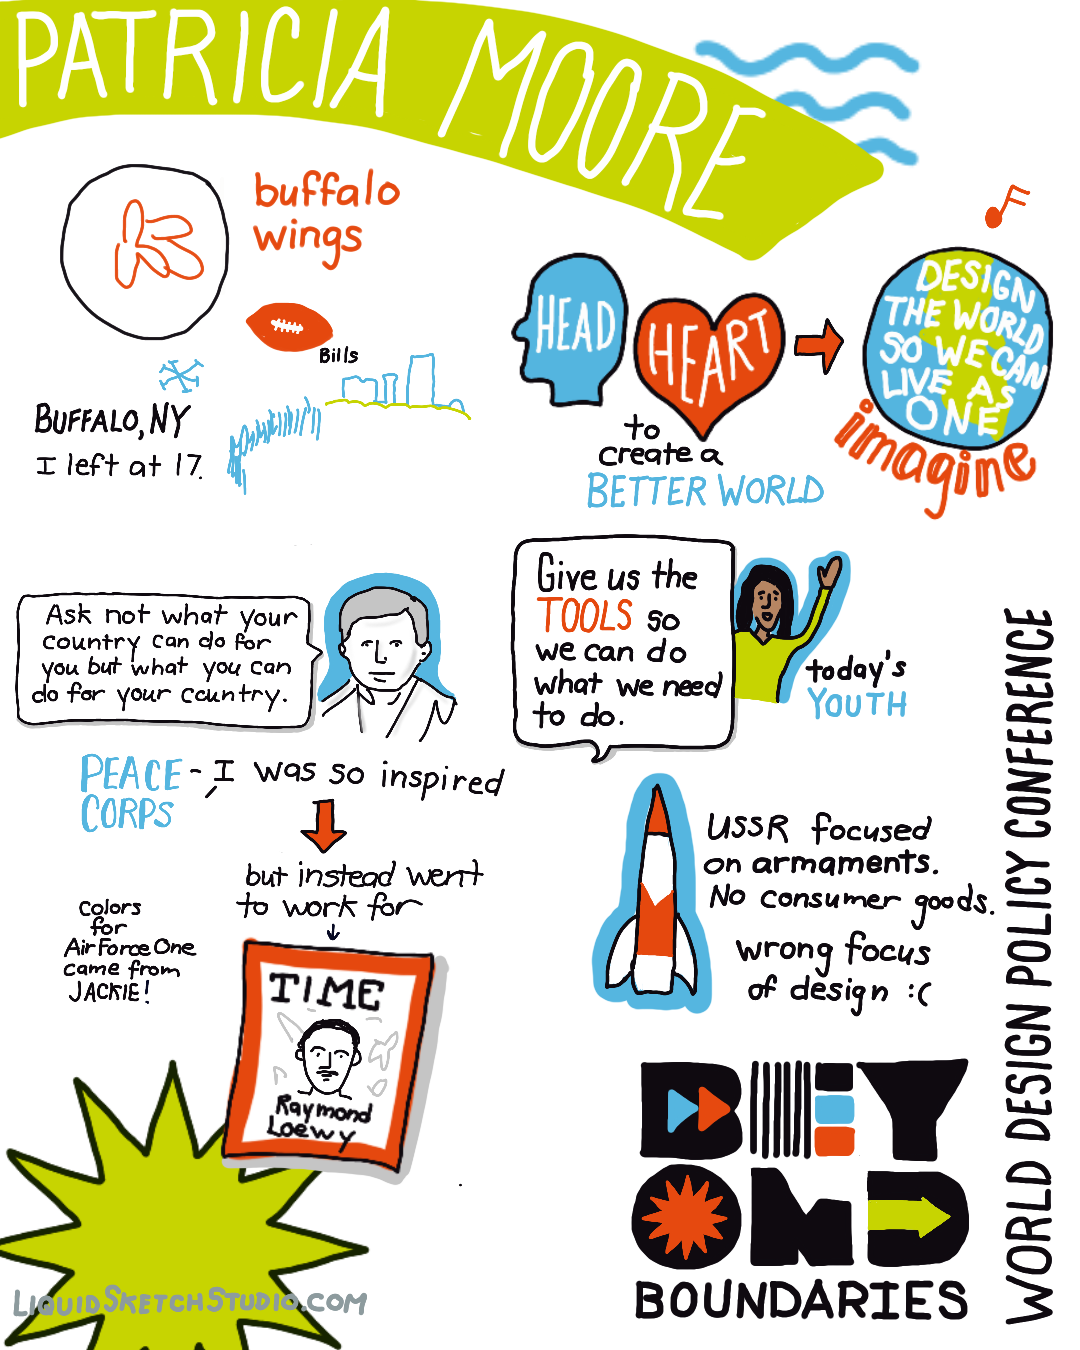 PATRICIA MOORE
buffalo
wings
Bills
BUFFALO, NY
I left at 17.
HEAD
HEART
to
create a
BETTER WORLD
DESIGN
THE WORLD
SO WE CAN
LIVE AS
ONE
imagine
Ask not what your
country can do for
you but what you can
do for your country.
Give us the
TOOLS so
we can do
what we need
to do.
today's
YOUTH
PEACE
CORPS
- I was so inspired
but instead went
to work for
Colors
for
Air Force One
came from
JACKIE!
TIME
Raymond
Loewy
USSR focused
on armaments.
No consumer goods.
wrong focus
of design :(
BEYOND
BOUNDARIES
WORLD DESIGN POLICY CONFERENCE
LIQUIDSKETCHSTUDIO.COM